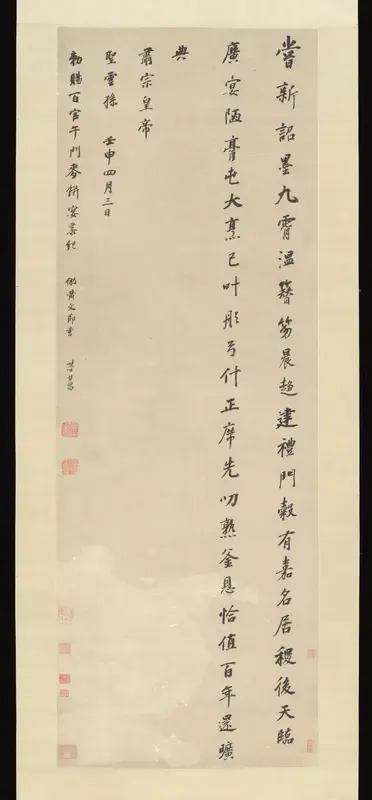 嘗新詔墨九霄溫簪笏晨趨建禮門穀有嘉名居稷後天臨
廣宴陋膏屯大烹已叶彤弓什正席先叨熟釜恩恰值百年還曠
典
肅宗皇帝
聖靈孫 壬申四月三日
勅賜百官午門麥餅宴恭紀 倣黃文節書 董其昌